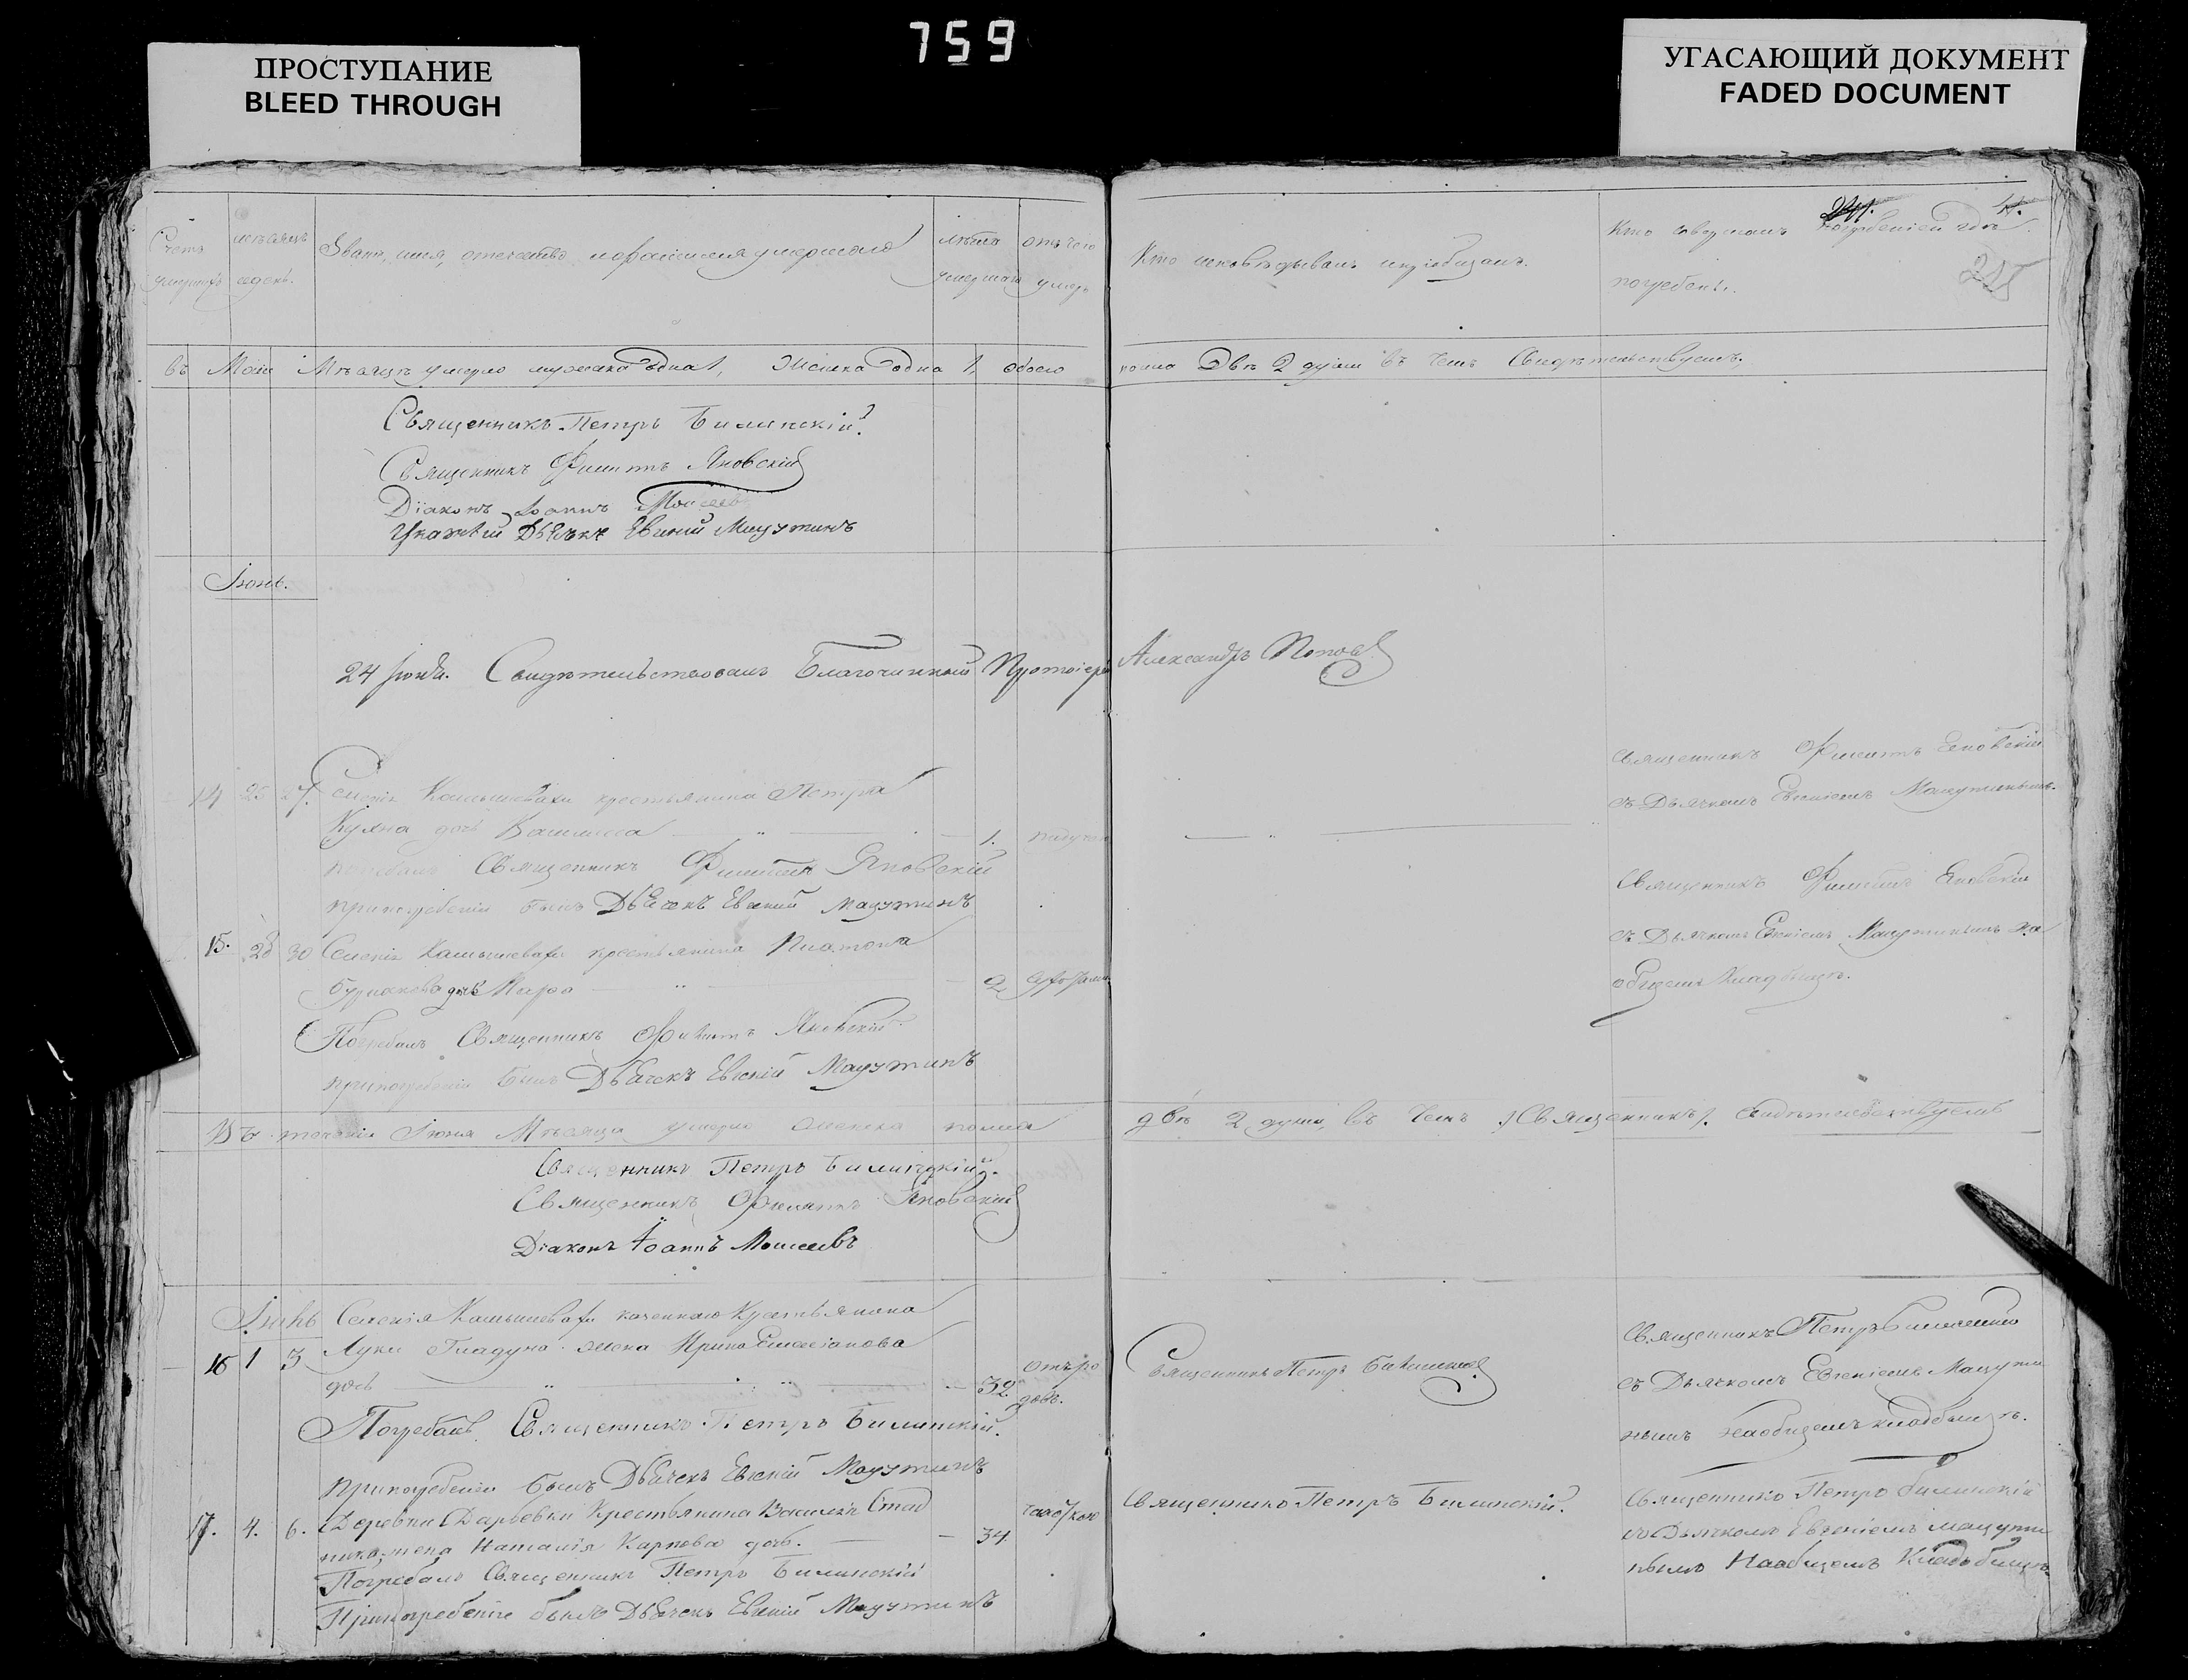 759
ПРОСТУПАНИЕ
BLEED THROUGH
УГАСАЮЩИЙ ДОКУМЕНТ
FADED DOCUMENT
Счетъ умершихъ
мѣсяцъ и день.
Званіе, имя, отечество и фамилія умершаго
лѣта умершаго
отъ чего умеръ
Кто исповѣдывалъ и пріобщалъ.
Кто совершалъ погребеніе и гдѣ погребенъ.
въ Маіи Мѣсяцѣ умерло мужеска одна 1, Женска одна 1, обоего пола Двѣ 2 души въ чемъ Свидѣтельствуемъ,
Священникъ Петръ Билинскій
Священникъ Филиппъ Яновскій
Діаконъ Іоаннъ Моисеевъ
Дьячекъ Евгеній
Іюнь.
24 Іюня. Свидѣтельствовалъ Благочинный Протоіерей Александръ Поповъ
14 25 27. Селенія Камышевахи крестьянина Петра
дочь Василиса 1.
погребалъ Священникъ Филиппъ Яновскій
при погребеніи былъ Дьячекъ Евгеній
Священникъ Филиппъ Яновскій
съ Дьячкомъ Евгеніемъ
15. 28 30 Селенія Камышевахи крестьянина Платона
дочь 2
Погребалъ Священникъ Филиппъ Яновскій
при погребеніи былъ Дьячекъ Евгеній
Священникъ Филиппъ Яновскій
съ Дьячкомъ Евгеніемъ на
общемъ Кладбищѣ.
Въ теченіи Іюня Мѣсяца умерло женска полла двѣ 2 души, въ чемъ Священникъ свидѣтельствуемъ
Священникъ Петръ Билинскій.
Священникъ Филиппъ Яновскій
Діаконъ Іоаннъ Моисеевъ
Іюль Селенія Камышевахи казеннаго Крестьянина
16 1 3 Луки Гладуна жена Ирина
дочь 32 отъ родовъ.
Священникъ Петръ Билинскій
Погребалъ Священникъ Петръ Билинскій.
при погребеніи былъ Дьячекъ Евгеній
Священникъ Петръ Билинскій
съ Дьячкомъ Евгеніемъ
на общемъ кладбищѣ.
17. 4. 6. Деревни Дарьевки Крестьянина Василія
жена Наталія Карпова дочь. 34
Священникъ Петръ Билинскій.
Погребалъ Священникъ Петръ Билинскій
При погребеніе былъ Дьячекъ Евгеній
Священникъ Петръ Билинскій
съ Дьячкомъ Евгеніемъ
На общемъ Кладбищѣ